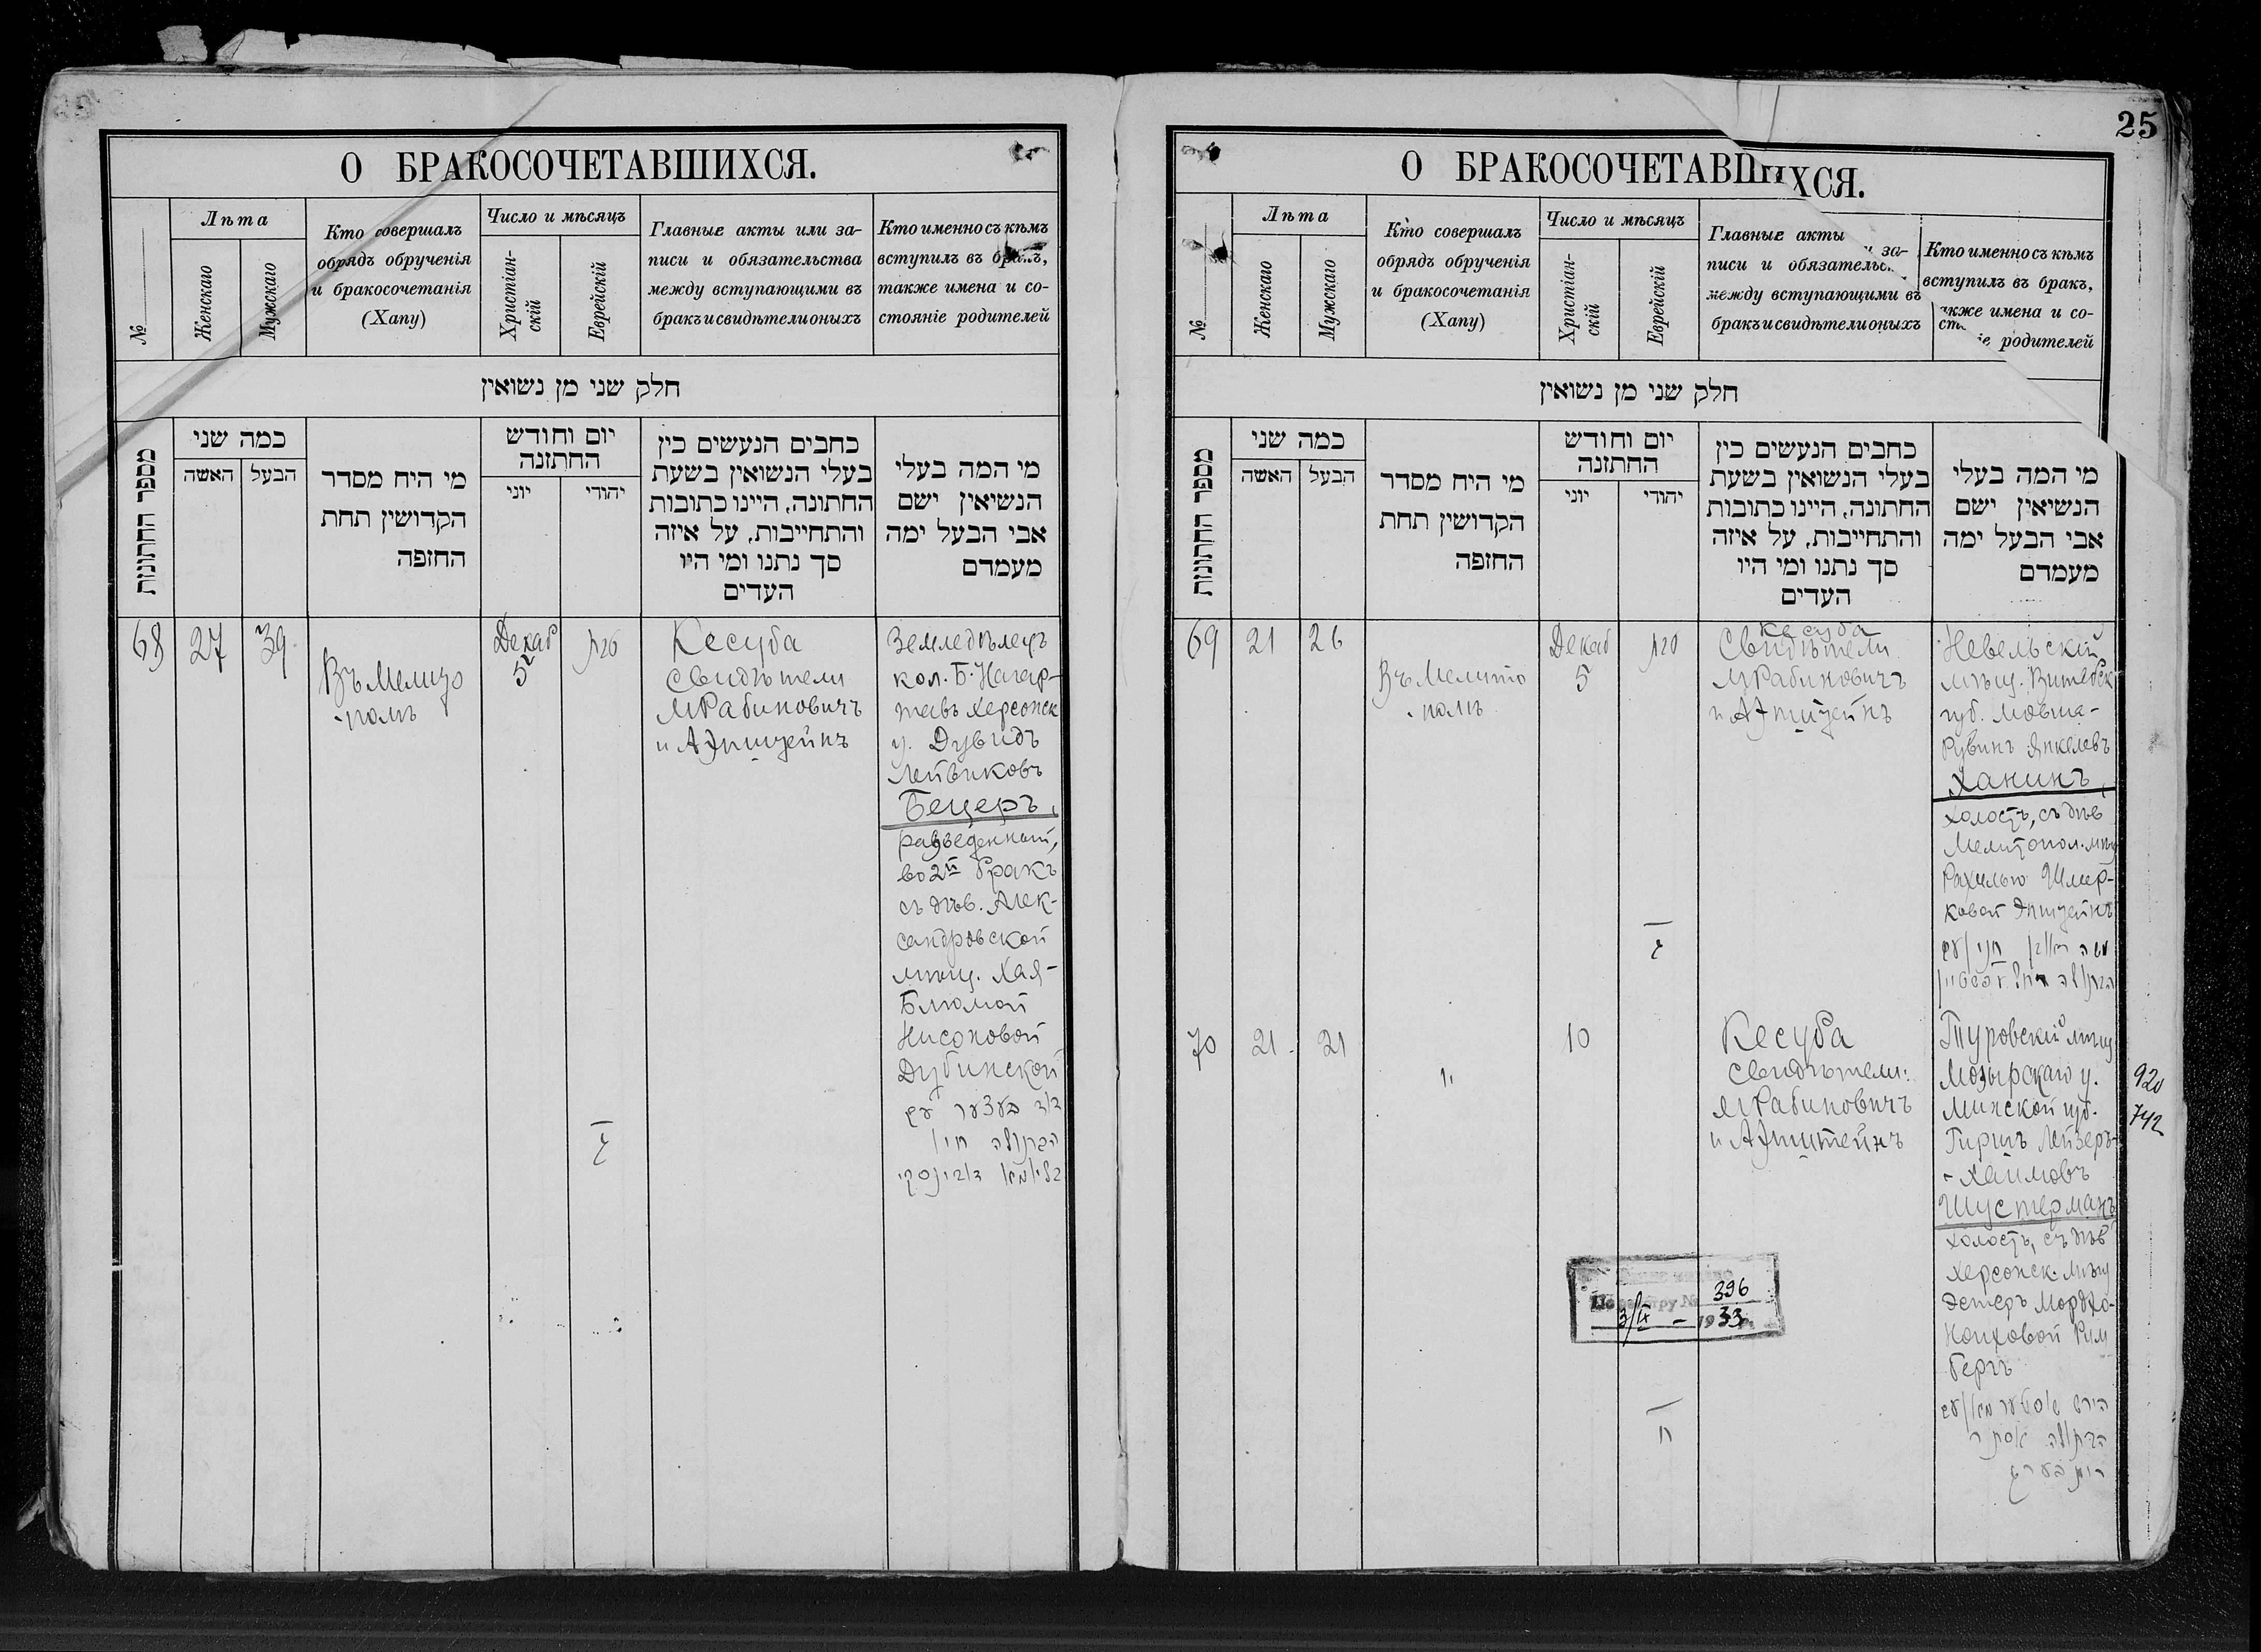 О БРАКОСОЧЕТАВШИХСЯ.
№
Лѣта
Женскаго
Мужскаго
Кто совершалъ
обрядъ обрученія
и бракосочетанія
(Хапу)
Число и мѣсяцъ
Христіан-
скій
Еврейскій
Главные акты или за-
писи и обязательства
между вступающими въ
бракъ и свидѣтели оныхъ
Кто именно съ кѣмъ
вступилъ въ бракъ,
также имена и со-
стояніе родителей
חלק שני מן נשואין
מספר החתונות
כמה שני
האשה
הבעל
מי היח מסדר
הקדושין תחת
החזפה
יום וחודש
החתזנה
יוני
יהודי
כחבים הנעשים כין
בעלי הנשואין בשעת
החתונה, היינו כתובות
והתחייבות, על איזה
סך נתנו ומי היו
העדים
מי המה בעלי
הנשיאין ישם
אבי הבעל ימה
מעמדם
68
27
39
Въ Мелито
-полѣ
Декаб
5
Кесуба
Свидѣтели
М Рабиновичъ
и А Эпштейнъ
Земледѣлецъ
кол. Б. Нагар-
тавъ Херсонск
у. Дувидъ
Лейвиковъ
Бецеръ,
разведенный,
во 2й бракъ
съ дѣв. Алек-
сандровской
мѣщ. Хая-
Блюмой
Нисоновой
Дубинской
דוד בעצער עם
הבתולה חיי
בליומא דובינסקי
25
О БРАКОСОЧЕТАВШИХСЯ.
№
Лѣта
Женскаго
Мужскаго
Кто совершалъ
обрядъ обрученія
и бракосочетанія
(Хапу)
Число и мѣсяцъ
Христіан-
скій
Еврейскій
Главные акты
и за-
писи и обязательс
между вступающими въ
бракъ и свидѣтели оныхъ
Кто именно съ кѣмъ
вступилъ въ бракъ,
акже имена и со-
ст
іе родителей
חלק שני מן נשואין
מספר החתונות
כמה שני
האשה
הבעל
מי היח מסדר
הקדושין תחת
החזפה
יום וחודש
החתזנה
יוני
יהודי
כחבים הנעשים כין
בעלי הנשואין בשעת
החתונה, היינו כתובות
והתחייבות, על איזה
סך נתנו ומי היו
העדים
מי המה בעלי
הנשיאין ישם
אבי הבעל ימה
מעמדם
69
21
26
Въ Мелито
-полѣ
Декаб
5
Кесуба
Свидѣтели
М Рабиновичъ
и А Эпштейнъ
Невельскій
мѣщ. Витебск
губ. Мовша-
Рувинъ Янкелевъ
Ханинъ,
холостъ, съ дѣв
Мелитопол. мѣщ
Рахилью Шмер-
ковой Эпштейнъ
משה ראובן חנין עם
הבתולה רחל עפשטיין
70
21
21
"
10
ח
Кесуба
Свидѣтели:
М Рабиновичъ
и А Эпштейнъ
Туровскій мѣщ
Мозырскаго у.
Минской губ.
Гиршъ Лейзеръ-
-Хаимовъ
Шустерманъ
холостъ, съ дѣв
Херсонск. мѣщ
Эстеръ Мордхо-
Ноиховой Рим
бергъ
הירש שוסטערמאן עם
הבתולה אסתר
רימבערג
920
742
396
1933